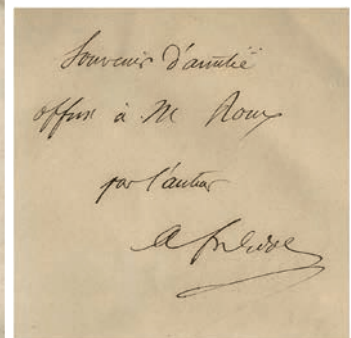 Souvenir d'amitié
offert à M Roux
par l'auteur